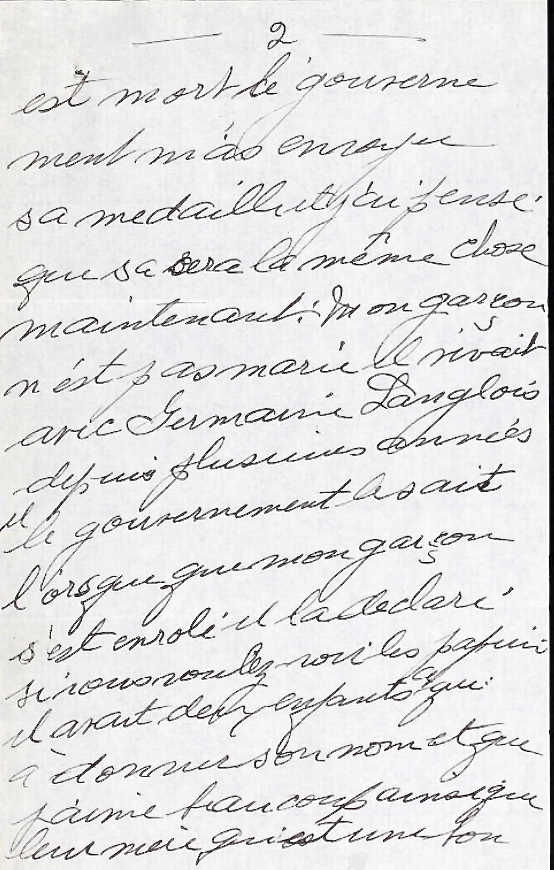 2
est mort le gouverne
ment m'as envoyu
sa medaille et j'ai pensé
que sa sera la même chose
maintenant. Mon garçon
n'est pas marié il vivait
avec Germaine Langlois
depuis plusieures années
il
le gouvernement le sait
l'orsque que mon garçon
s'est enrolé il la declaré
si vous voulez voir les papier
il avait deux enfants que
à donner son nom et que
j'aime beaucoup ainsi que
leur mère qui est une bon